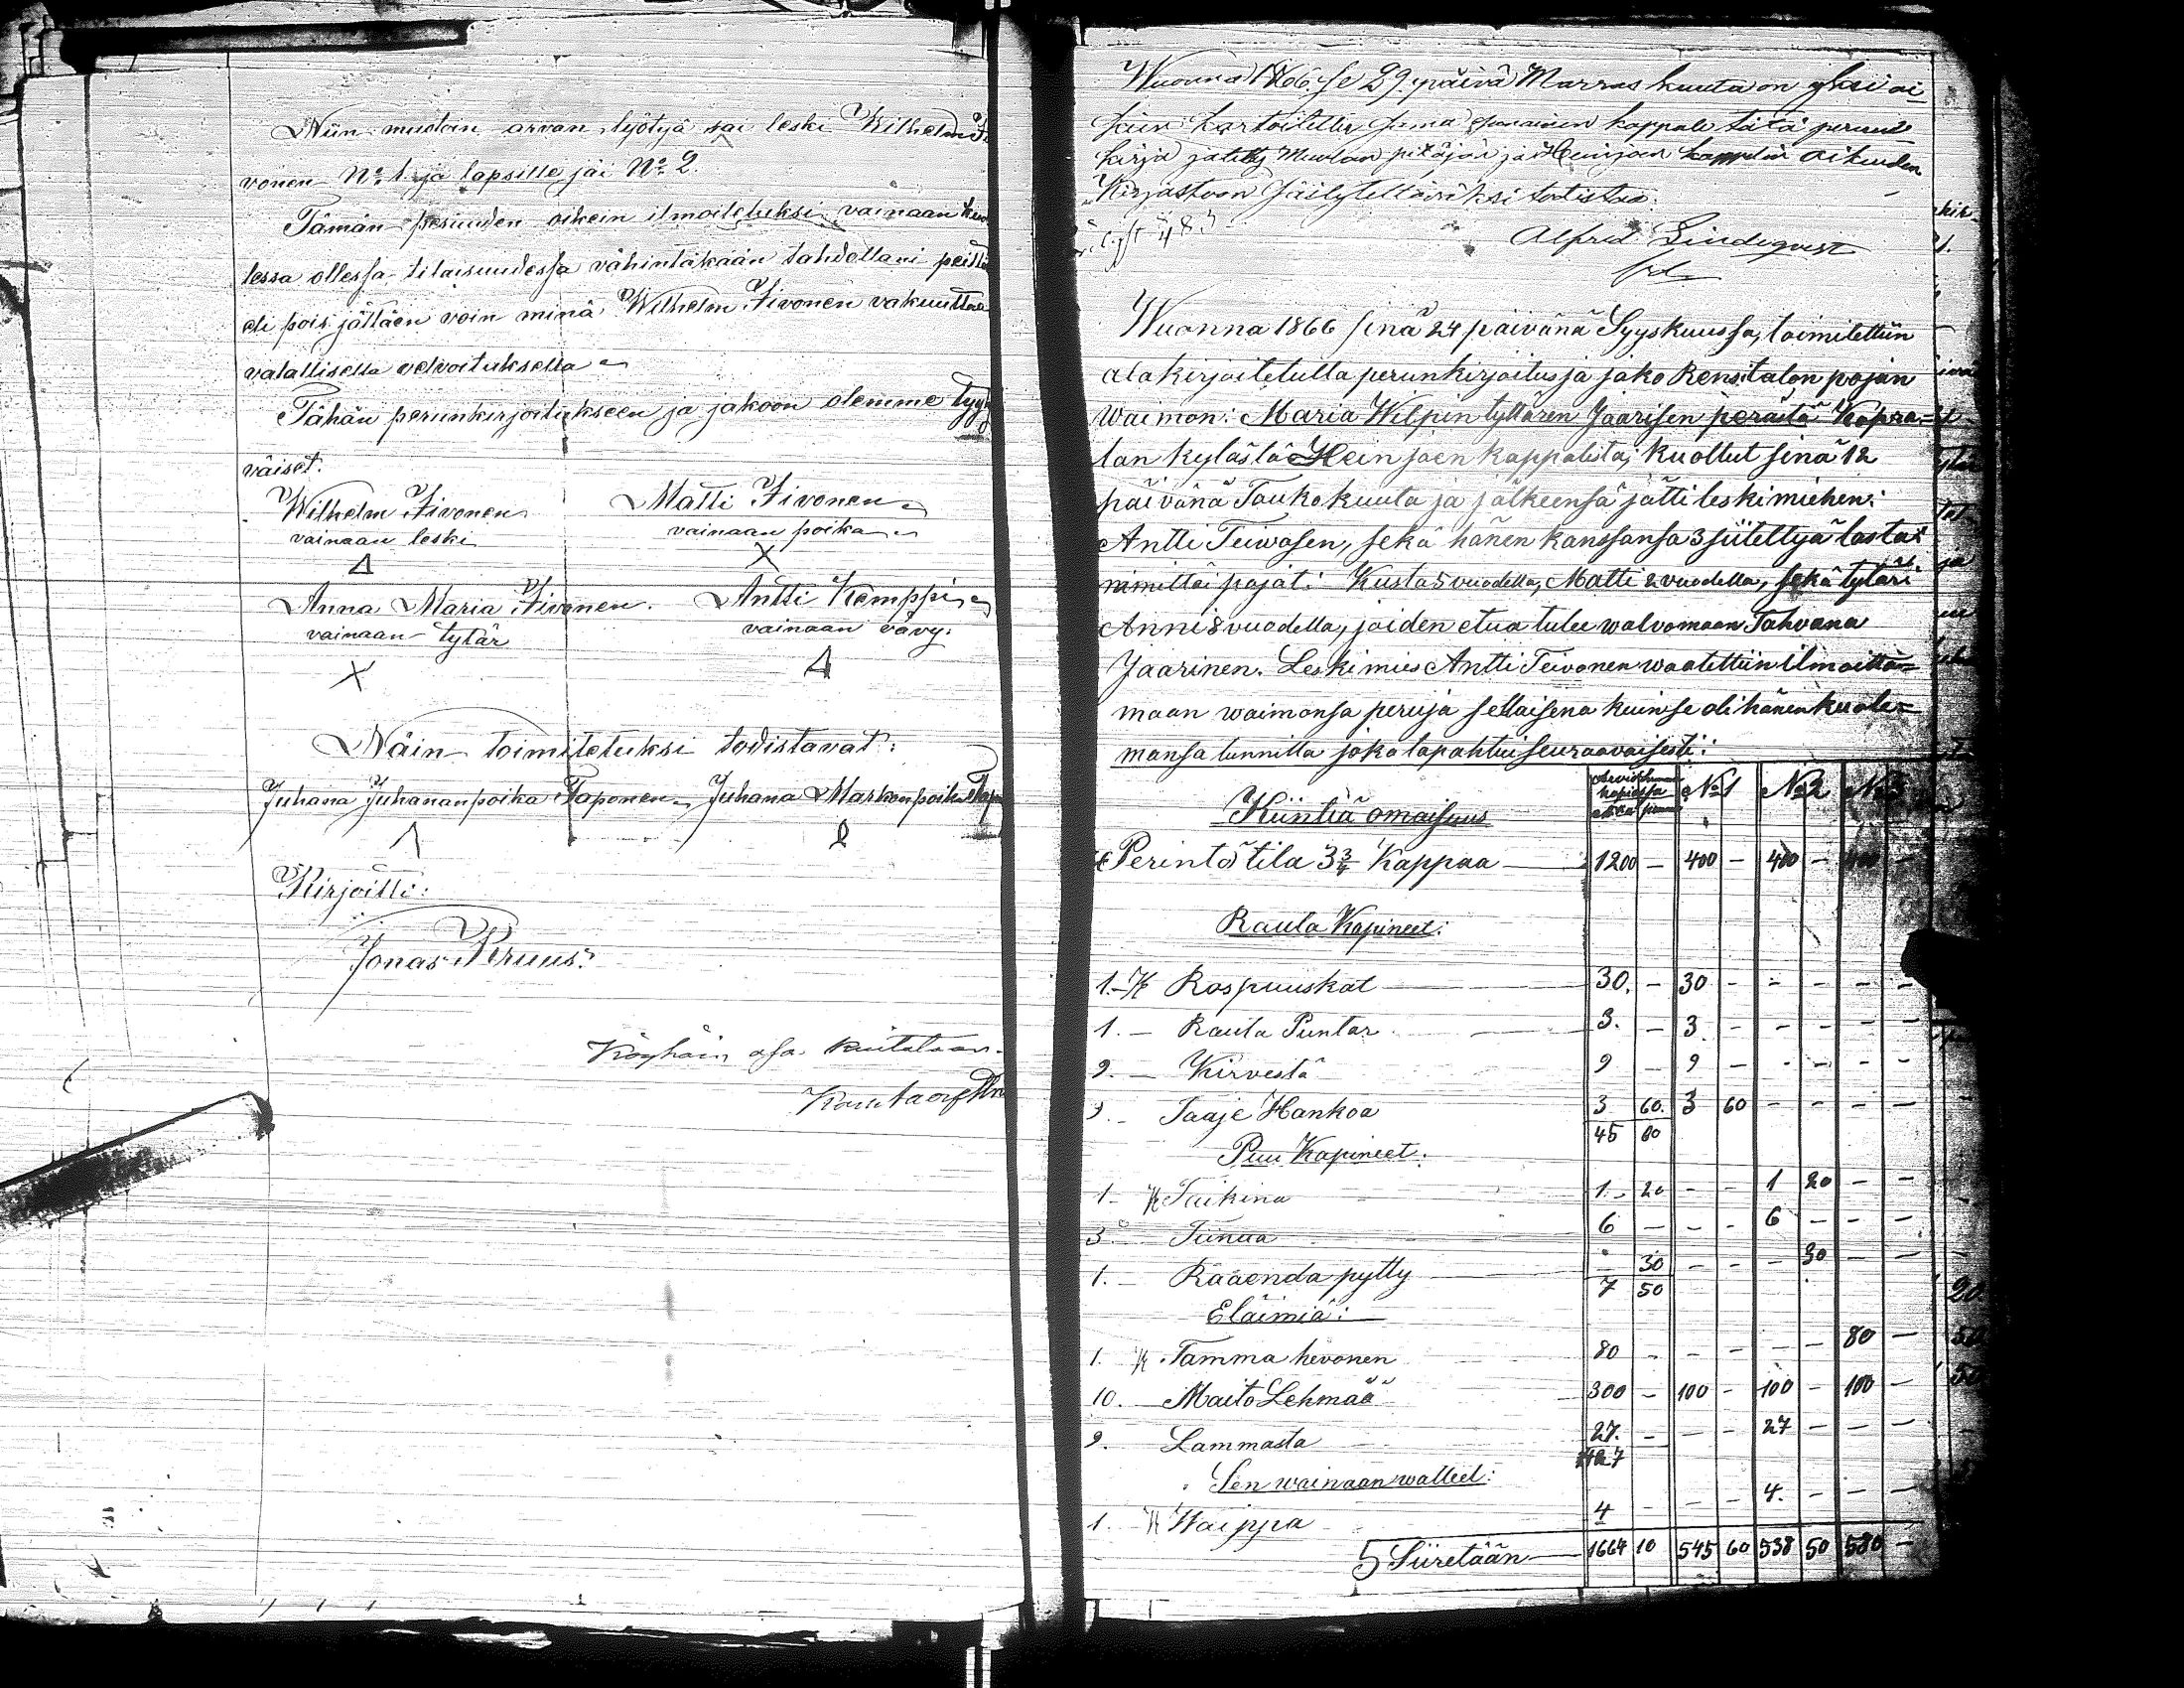 Niin muotoin arvan lyötyä sai leski Wilhelm Ti
vonen No 1. ja lapsille jäi No 2.
Tämän pesuuden oikein ilmoitetuksi vainaan kuo
lessa ollessa tilaisuudessa vähintäkään tahdollani peittä
eli pois jättäen voin minä Wilhelm Tivonen vakuuttaa
valallisella velvoituksella
Tähän perunkirjoitukseen ja jakoon olemme tyy
väiset.
Wilhelm Tivonen Matti Tivonen
vainaan leski vainaan poika
X
Anna Maria Tivonen. Antti Kemppi
vainaan tytär vainaan vävy.
X
Näin toimitetuksi todistavat:
Juhana Juhananpoika Taponen Juhana Markonpoika Tapo
Kirjoitti:
Jonas Peruus.
Köyhäin osa kuitataan.
Wuonna 1866 se 29 päivä Marras kuuta on yksi oi
kein kartoitettu sama kappale tätä perun
kirja jätetty Muolan pitäjän ja Heinjoen kappelin oikeuden
Kirjastoon säilytettäväksi todistaa.
Alfred Lindeqvist
Wuonna 1866 sinä 24 päivänä Syyskuussa, toimitettiin
alakirjoitetulta perunkirjoitus ja jako Rensitalon pojan
waimon: Maria Wilpin tyttären Jaarisen perästä Kopra-
lan kylästä Heinjoen kappelista; kuollut sinä 12
päivänä Toukokuuta ja jälkeensä jätti leskimiehen:
Antti Teivosen, sekä hänen kanssansa 3 siitettyä lasta:
nimittäi pojat: Kusta 5 vuodella, Matti 2 vuodella, sekä tytäri
Anni 8 vuodella, joiden etua tulee walvomaan Tahvana
Jaarinen. Leskimies Antti Teivonen waatettiin ilmoitta-
maan waimonsa peruja sellaisena kuin se oli hänen kuole-
mansa tunnilla joka tapahtui seuraavaisesti:
Kiintiä omaisuus No 1 No 2 No 3
Perintö tila 3 3/4 Kappaa 1200 - 400 - 400 - 400 -
Rauta Kapineet:
1.- K Rospuuskat 30. - 30 - - - - -
1. - Rauta Puntar 3. - 3. - - - - -
9. - Kirvestä 9 - 9 - - - - -
3. - Taaje Hankoa 3 60. 3 60 - - - -
45 60
Puu Kapineet:
1. K Taikina 1. 20 - - 1 20 - -
3. Tiinua 6 - - - 6 - - -
1. - Rääenda pytty - 30 - - - 30 - -
7 50
Eläimiä:
1. K Tamma hevonen 80 - - - - - 80 -
10. Maito Lehmää 300 - 100 - 100 - 100 -
9. Lammasta 27. - - - 27 - - -
407
Sen wainaan watteet:
1. K Waippa 4 - - - 4. - - -
5 Siiretään 1664 10 545 60 538 50 580 -